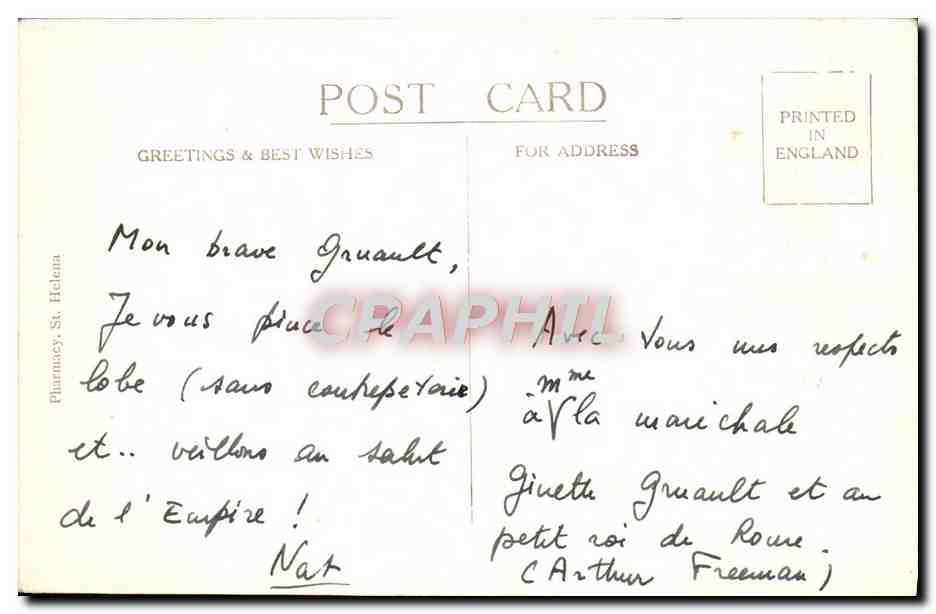 POST CARD
GREETINGS & BEST WISHES
FOR ADDRESS
PRINTED
IN
ENGLAND
Pharmacy, St. Helena
Mon brave Gruault,
Je vous pince le
lobe (sans contrepeterie)
et.. veillons au salut
de l'Empire !
Nat
Avec tous mes respects
à Mme la maréchale
Ginette Gruault et au
petit roi de Rome.
(Arthur Freeman)
CPAPHIL